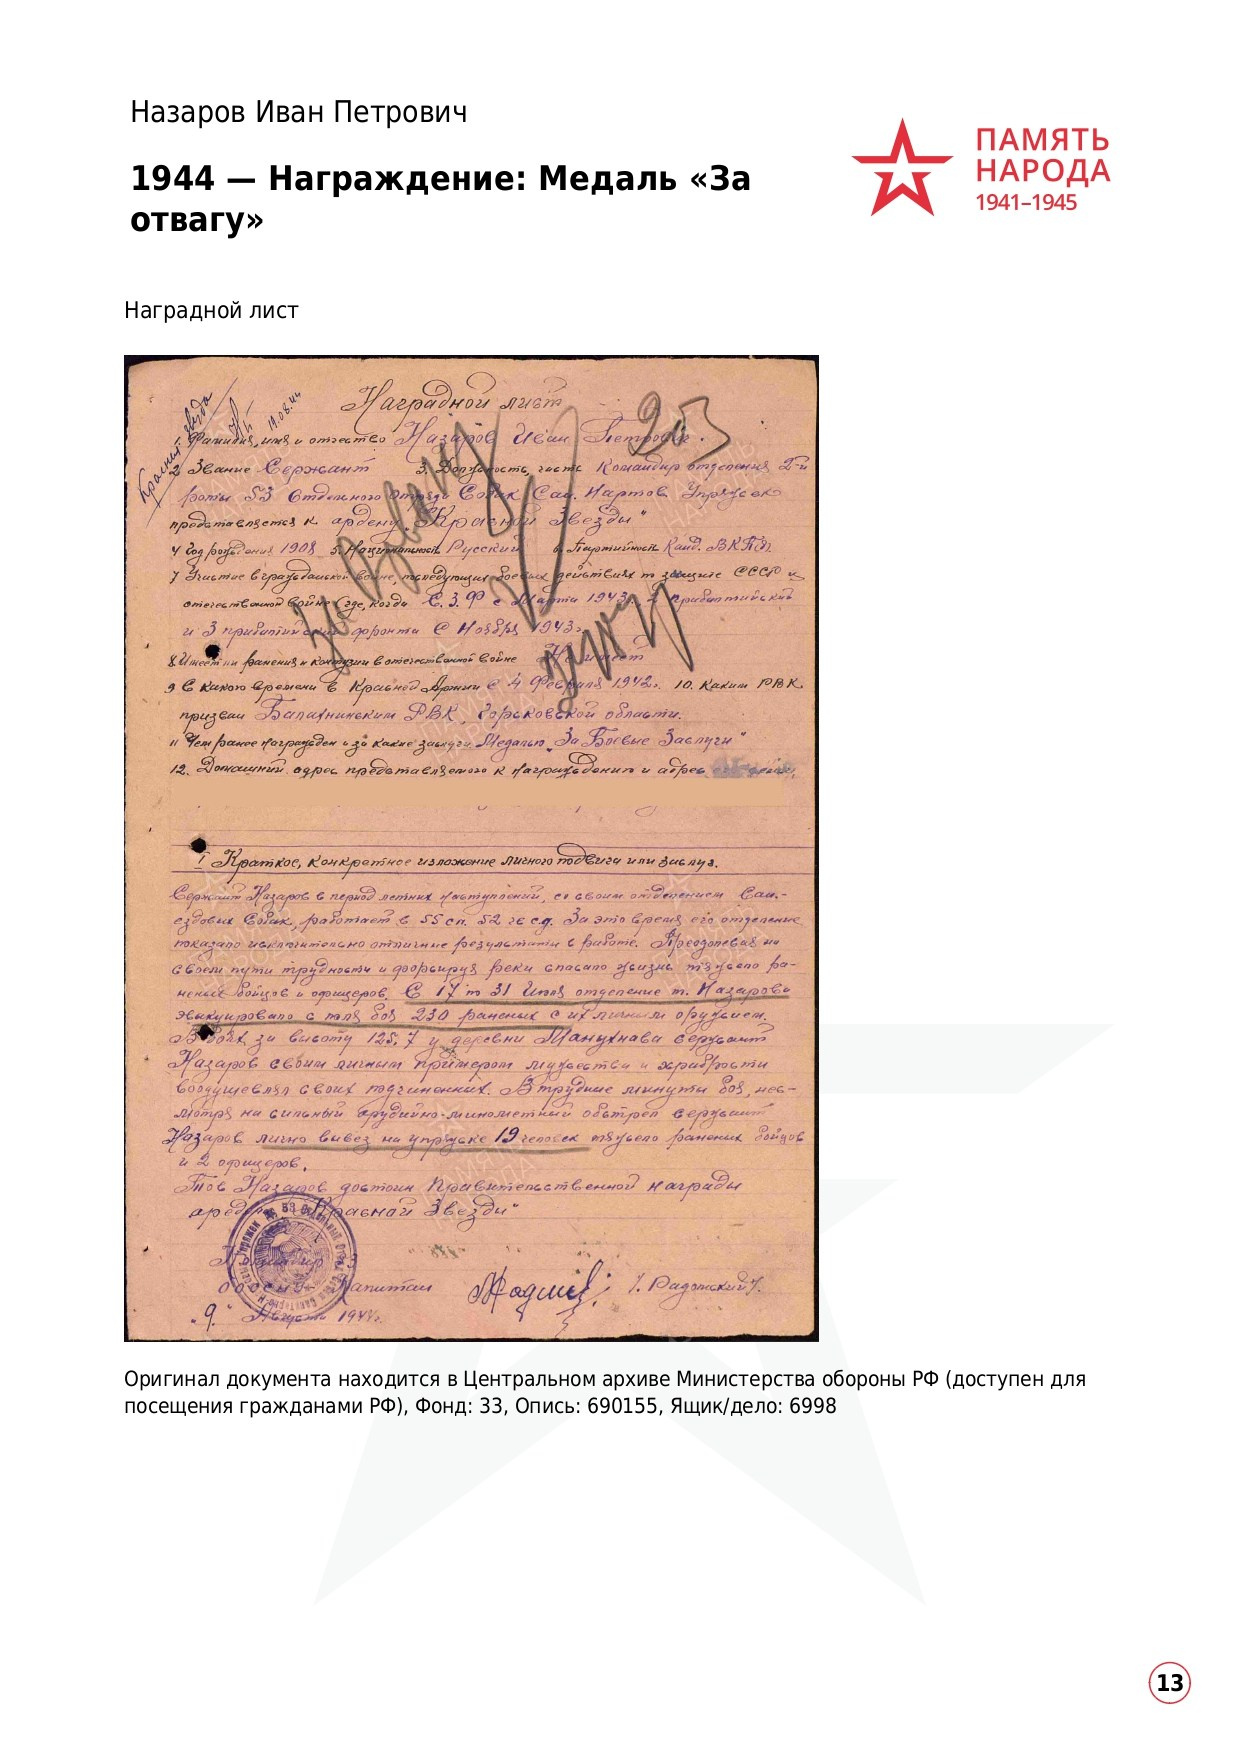 Назаров Иван Петрович
1944 — Награждение: Медаль «За
отвагу»
ПАМЯТЬ
НАРОДА
1941–1945
Наградной лист
Наградной лист
Красная звезда
19.08.44
1. Фамилия, имя и отчество Назаров Иван Петрович.
2 Звание Сержант 3. Должность, часть Командир отделения 2-й
роты 53 Отдельного Отряда Собак Сан. Нартов. Упряжек
представляется к ордену "Красной Звезды"
4 Год рождения 1908 5. Национальность Русский 6. Партийность Канд. ВКП(б).
7 Участие в гражданской войне, последующих боевых действиях по защите СССР и
отечественной войне (где, когда С.З.Ф с Марта 1943г., 2 прибалтийский
и 3 прибалтийский фронта С Ноября 1943г.
8. Имеет ли ранения и контузии в отечественной войне Не имеет
9 С какого времени в Красной Армии С 4 Февраля 1942г. 10. Каким РВК
призван Балахнинским РВК, Горьковской области.
11 Чем ранее награжден и за какие заслуги Медалью "За Боевые Заслуги"
12. Домашний адрес представляемого к награждению и адрес
I Краткое, конкретное изложение личного подвига или заслуг.
Сержант Назаров в период летних наступлений, со своим отделением Сан.-
ездовых Собак, работает в 55 сп. 52 гв с.д. За это время его отделение
показало исключительно отличные результаты в работе. Преодолевая на
своем пути трудности и форсируя реки спасало жизнь тяжело ра-
неных бойцов и офицеров. С 17 по 31 Июля отделение т. Назарова
эвакуировало с поля боя 230 раненых с их личным оружием.
В боях за высоту 125,7 у деревни сержант
Назаров своим личным примером мужества и храбрости
воодушевлял своих подчиненных. В трудные минуты боя, нес-
мотря на сильный орудийно-минометный обстрел сержант
Назаров лично вывез на упряжке 19 человек тяжело раненых бойцов
и 2 офицеров.
Тов Назаров достоин Правительственной награды
орденом "Красной Звезды"
Командир 53
Капитан
"9." Августа 1944г.
Оригинал документа находится в Центральном архиве Министерства обороны РФ (доступен для
посещения гражданами РФ), Фонд: 33, Опись: 690155, Ящик/дело: 6998
13